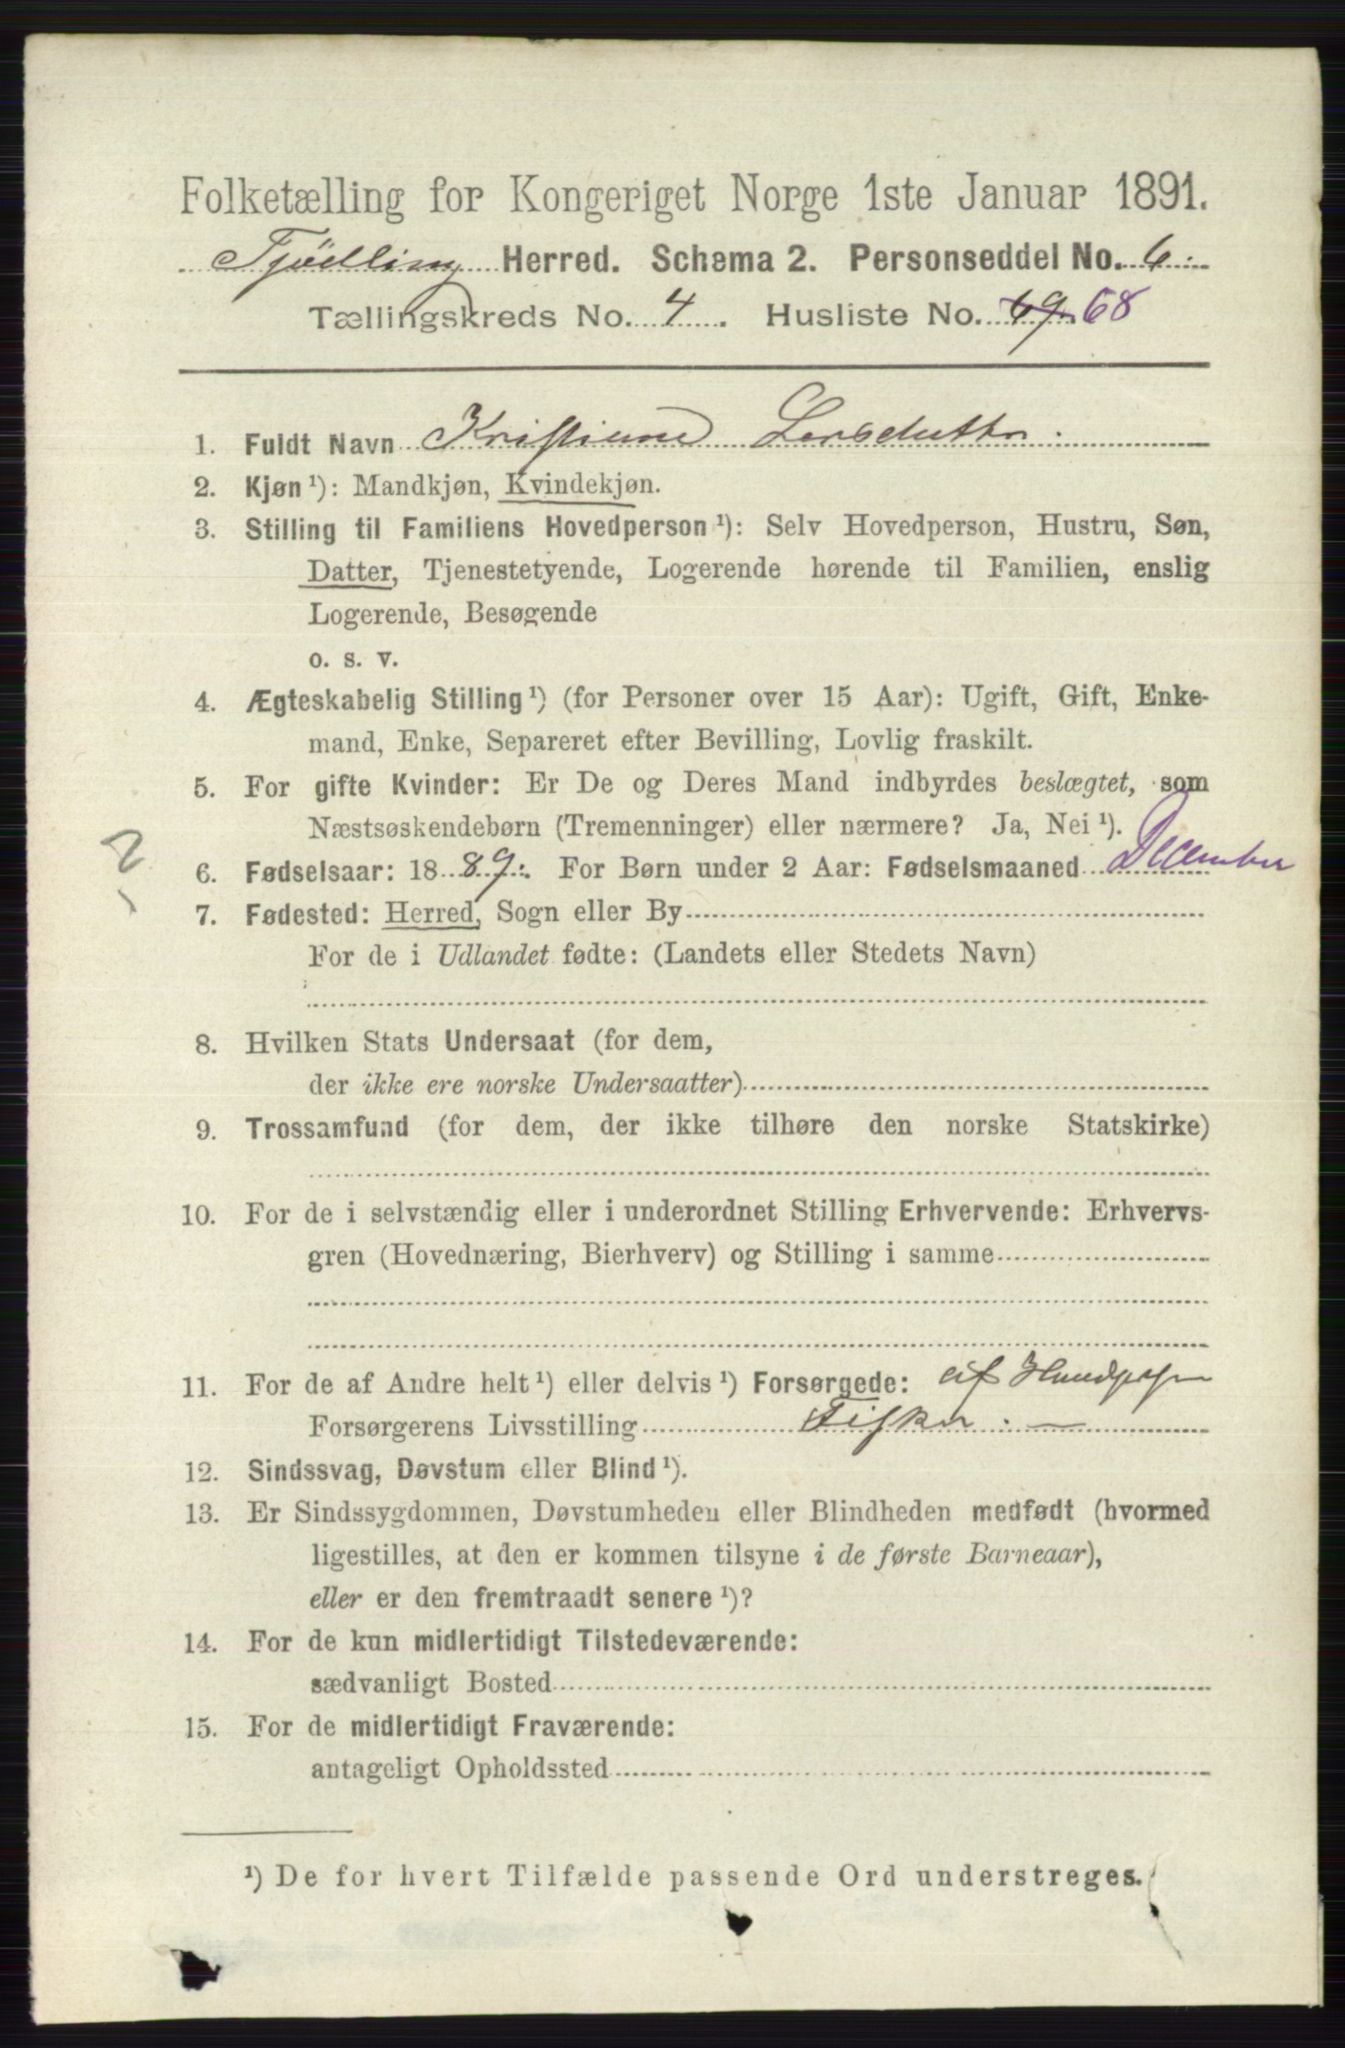 Folketælling for Kongeriget Norge 1ste Januar 1891.
Tjølling Herred. Schema 2. Personseddel No. 6.
Tællingskreds No. 4. Husliste No. 69. 68
1. Fuldt Navn Kristiane Larsdatter.
2. Kjøn ¹): Mandkjøn, Kvindekjøn.
3. Stilling til Familiens Hovedperson ¹): Selv Hovedperson, Hustru, Søn,
Datter, Tjenestetyende, Logerende hørende til Familien, enslig
Logerende, Besøgende
o. s. v.
4. Ægteskabelig Stilling ¹) (for Personer over 15 Aar): Ugift, Gift, Enke-
mand, Enke, Separeret efter Bevilling, Lovlig fraskilt.
5. For gifte Kvinder: Er De og Deres Mand indbyrdes beslægtet, som
Næstsøskendebørn (Tremenninger) eller nærmere? Ja, Nei ¹).
2
6. Fødselsaar: 1889. For Børn under 2 Aar: Fødselsmaaned December
7. Fødested: Herred, Sogn eller By
For de i Udlandet fødte: (Landets eller Stedets Navn)
8. Hvilken Stats Undersaat (for dem,
der ikke ere norske Undersaatter)
9. Trossamfund (for dem, der ikke tilhøre den norske Statskirke)
10. For de i selvstændig eller i underordnet Stilling Erhvervende: Erhvervs-
gren (Hovednæring, Bierhverv) og Stilling i samme
11. For de af Andre helt ¹) eller delvis ¹) Forsørgede: af
Forsørgerens Livsstilling Fisker. —
12. Sindssvag, Døvstum eller Blind ¹).
13. Er Sindssygdommen, Døvstumheden eller Blindheden medfødt (hvormed
ligestilles, at den er kommen tilsyne i de første Barneaar),
eller er den fremtraadt senere ¹)?
14. For de kun midlertidigt Tilstedeværende:
sædvanligt Bosted
15. For de midlertidigt Fraværende:
antageligt Opholdssted
¹) De for hvert Tilfælde passende Ord understreges.